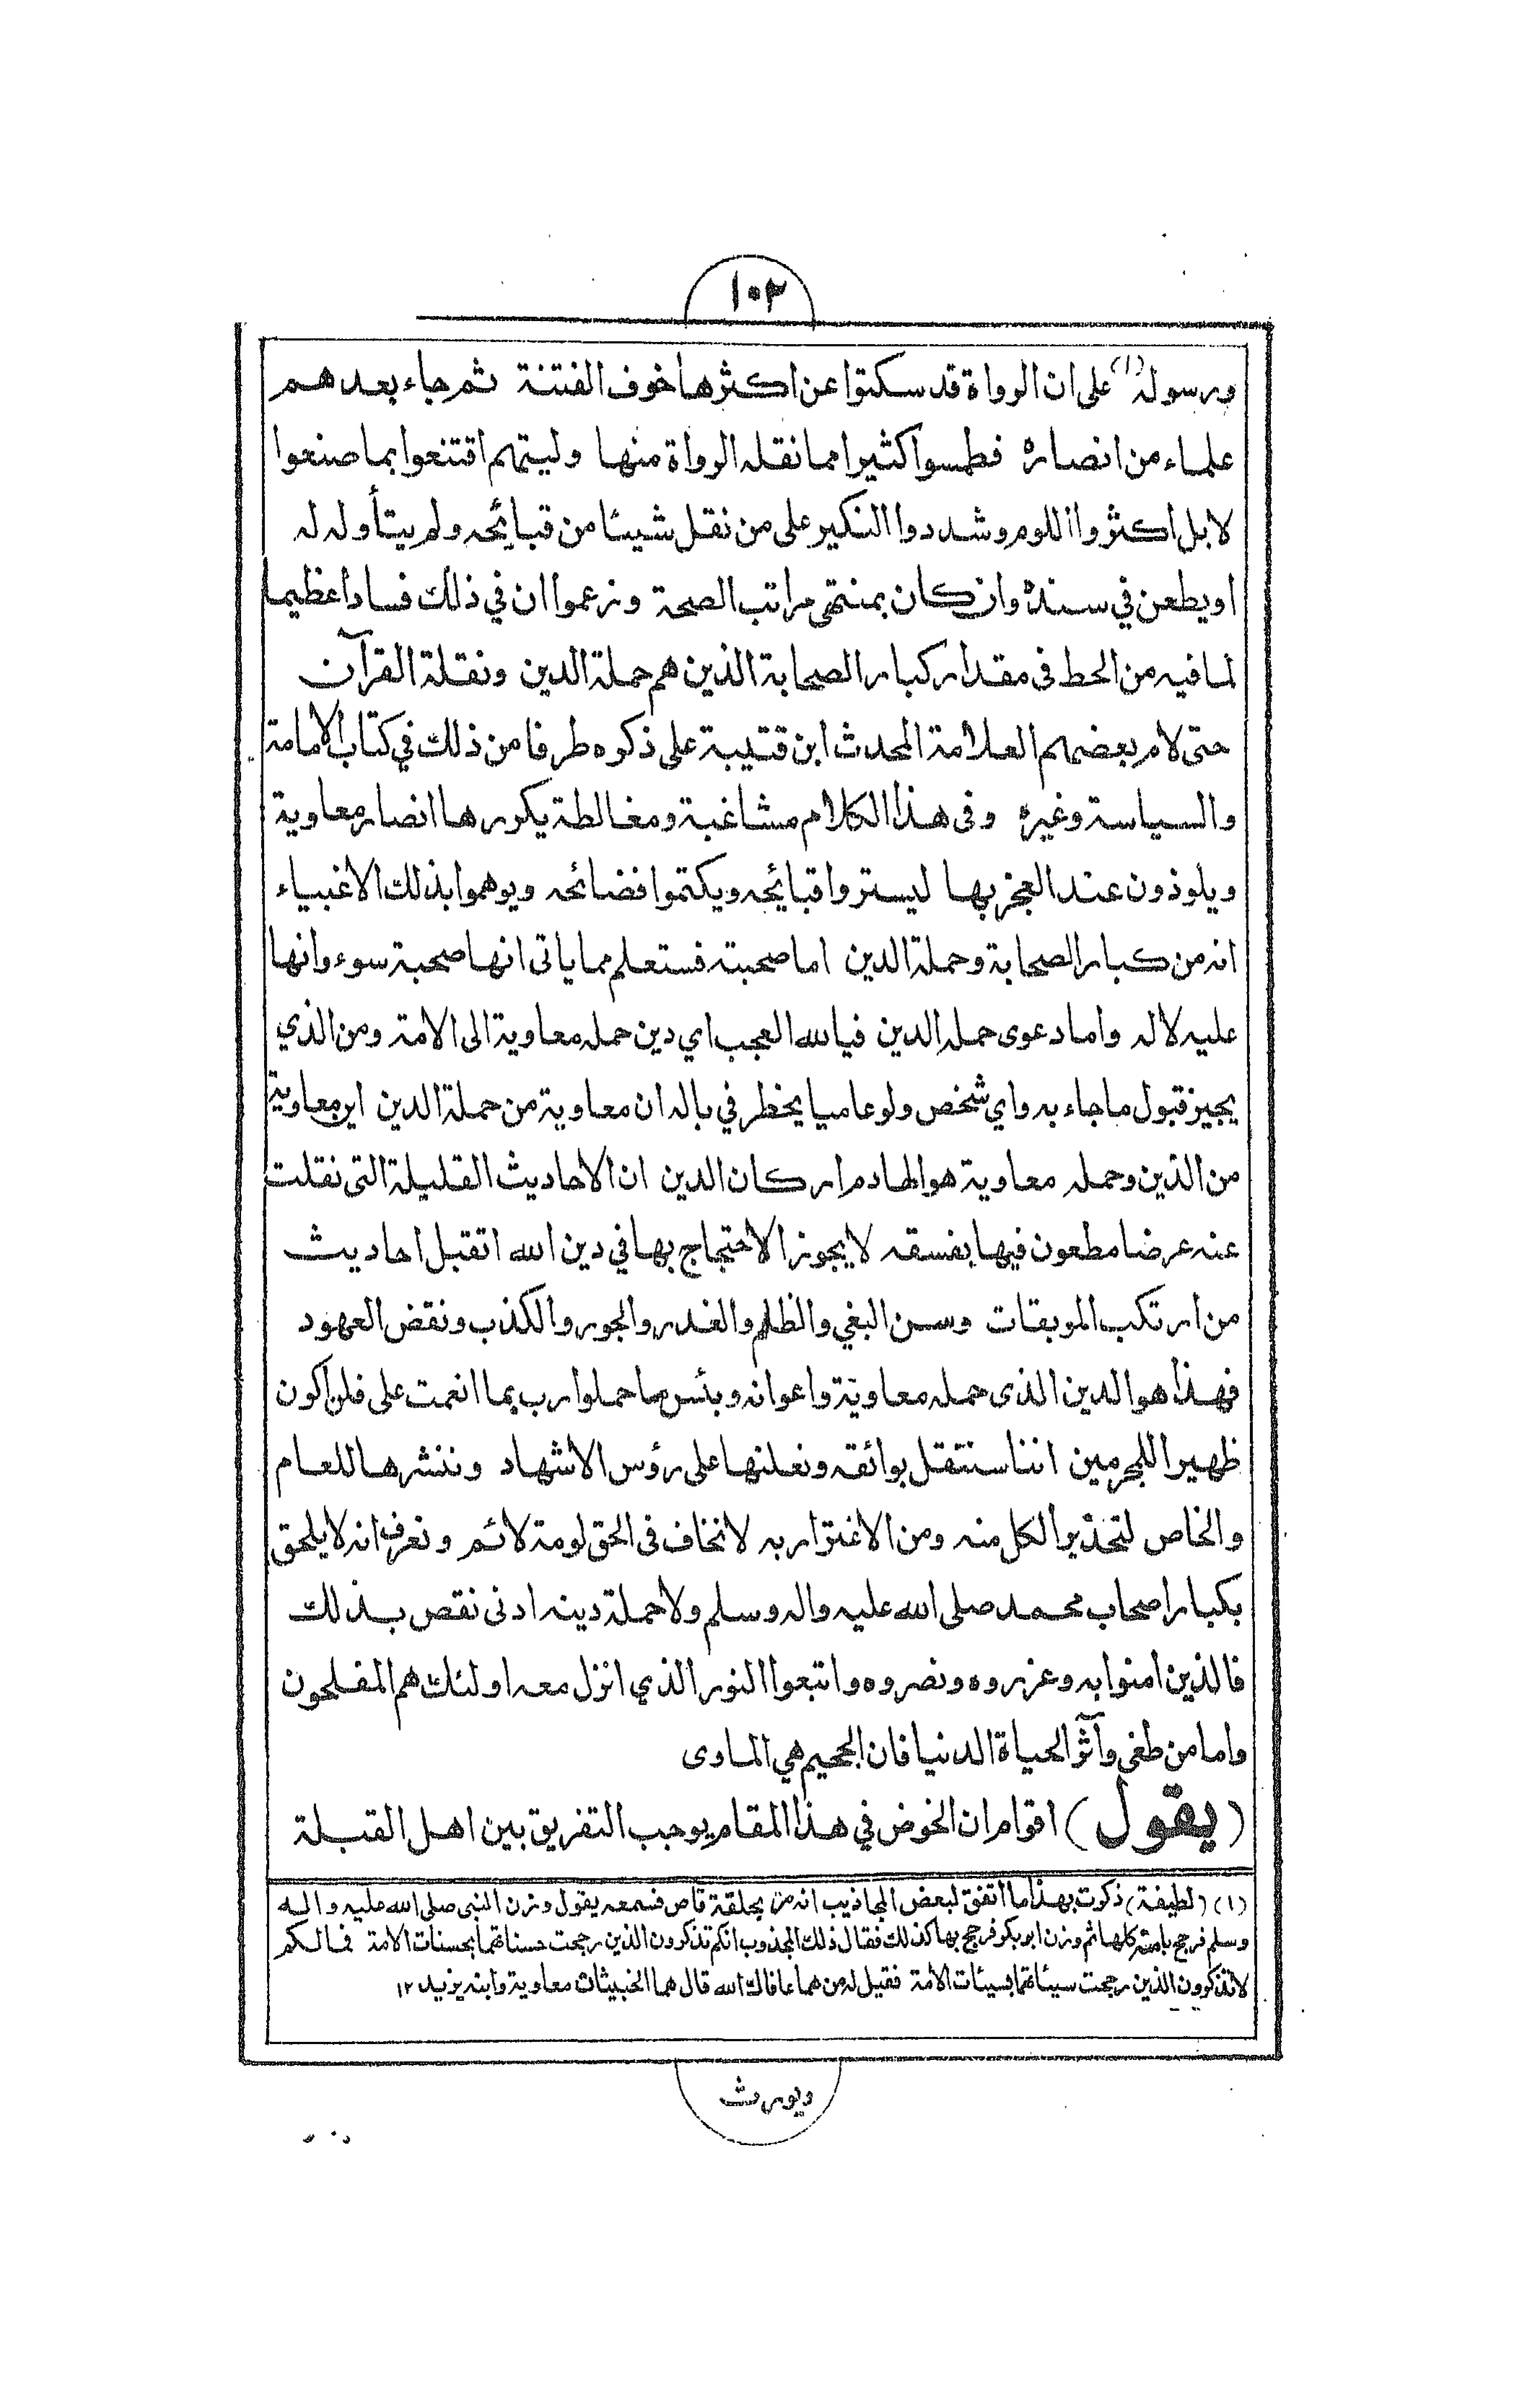 ١٠٢
ورسوله (١) على ان الرواة قد سكتوا عن اكثرها خوف الفتنة ثم جاء بعدهم
علماء من انصاره فطمسوا كثيرا مما نقله الرواة منها وليتهم اقتنعوا بما صنعوا
لا بل اكثروا اللوم وشددوا النكير على من نقل شيئا من قبائحه ولم يتأوله له
او يطعن في سنده وان كان بمنتهى مراتب الصحة وزعموا ان في ذلك فسادا عظيما
لما فيه من الحط فى مقدار كبار الصحابة الذين هم حملة الدين ونقلة القرآن
حتى لام بعضهم العلامة المحدث ابن قتيبة على ذكره طرفا من ذلك في كتاب الامامة
والسياسة وغيره وفى هذا الكلام مشاغبة ومغالطة يكررها انصار معاوية
ويلوذون عند العجز بها ليستروا قبائحه ويكتموا فضائحه ويوهموا بذلك الاغبياء
انه من كبار الصحابة وحملة الدين اما صحبته فستعلم مما ياتى انها صحبة سوء وانها
عليه لا له واما دعوى حمله الدين فيالله العجب اي دين حمله معاوية الى الامة ومن الذي
يجيز قبول ما جاء به واي شخص ولو عاميا يخطر في باله ان معاوية من حملة الدين اين معاوية
من الدين وحمله معاوية هو الهادم اركان الدين ان الاحاديث القليلة التى نقلت
عنه عرضا مطعون فيها بفسقه لا يجوز الاحتجاج بها في دين الله اتقبل احاديث
من ارتكب الموبقات وسن البغي والظلم والغدر والجور والكذب ونقض العهود
فهذا هو الدين الذى حمله معاوية واعوانه وبئس ما حملوا رب بما انعمت على فلن اكون
ظهيرا للمجرمين اننا سننقل بوائقه ونعلنها على رؤس الاشهاد وننشرها للعام
والخاص لتحذير الكل منه ومن الاغترار به لا نخاف فى الحق لومة لائم ونعرف انه لا يلحق
بكبار اصحاب محمد صلى الله عليه واله وسلم ولا حملة دينه ادنى نقص بذلك
فالذين امنوا به وعزروه ونصروه واتبعوا النور الذي انزل معه اولئك هم المفلحون
واما من طغى وآثر الحياة الدنيا فان الجحيم هي الماوى
(يقول) اقوام ان الخوض في هذا المقام يوجب التفريق بين اهل القبلة
(١) (لطيفة) ذكرت بهذا ما اتفق لبعض المجاذيب انه مر بحلقة قاص فسمعه يقول وزن النبي صلى الله عليه واله
وسلم فرجح بامته كلها ثم وزن ابو بكر فرجح بها كذلك فقال ذلك المجذوب انكم تذكرون الذين رجحت حسناتهما بحسنات الامة فما لكم
لا تذكرون الذين رجحت سيئاتهما بسيئات الامة فقيل له من هما عافاك الله قال هما الخبيثان معاوية وابنه يزيد ١٢
ويورث